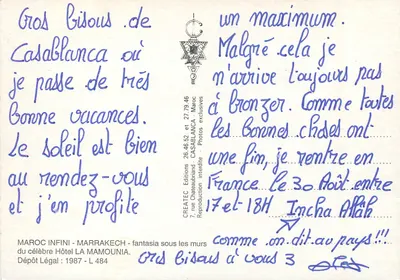 Gros bisous de
Casablanca où
je passe de très
bonne vacances.
Le soleil est bien
au rendez-vous
et j'en profite
un maximum.
Malgré cela je
n'arrive toujours pas
à bronzer. Comme toutes
les bonnes choses ont
une fin, je rentre en
France le 30 Août entre
17 et 18H Incha Allah
comme on dit au pays!!!
Gros bisous à vous 3
CREATEC Editions 26.46.52 et 27.79.46
7, rue Chateaubriand - CASABLANCA, Maroc
Reproduction interdite Photos exclusives
MAROC INFINI - MARRAKECH - fantasia sous les murs
du célèbre Hôtel LA MAMOUNIA.
Dépôt Légal : 1987 - L 484